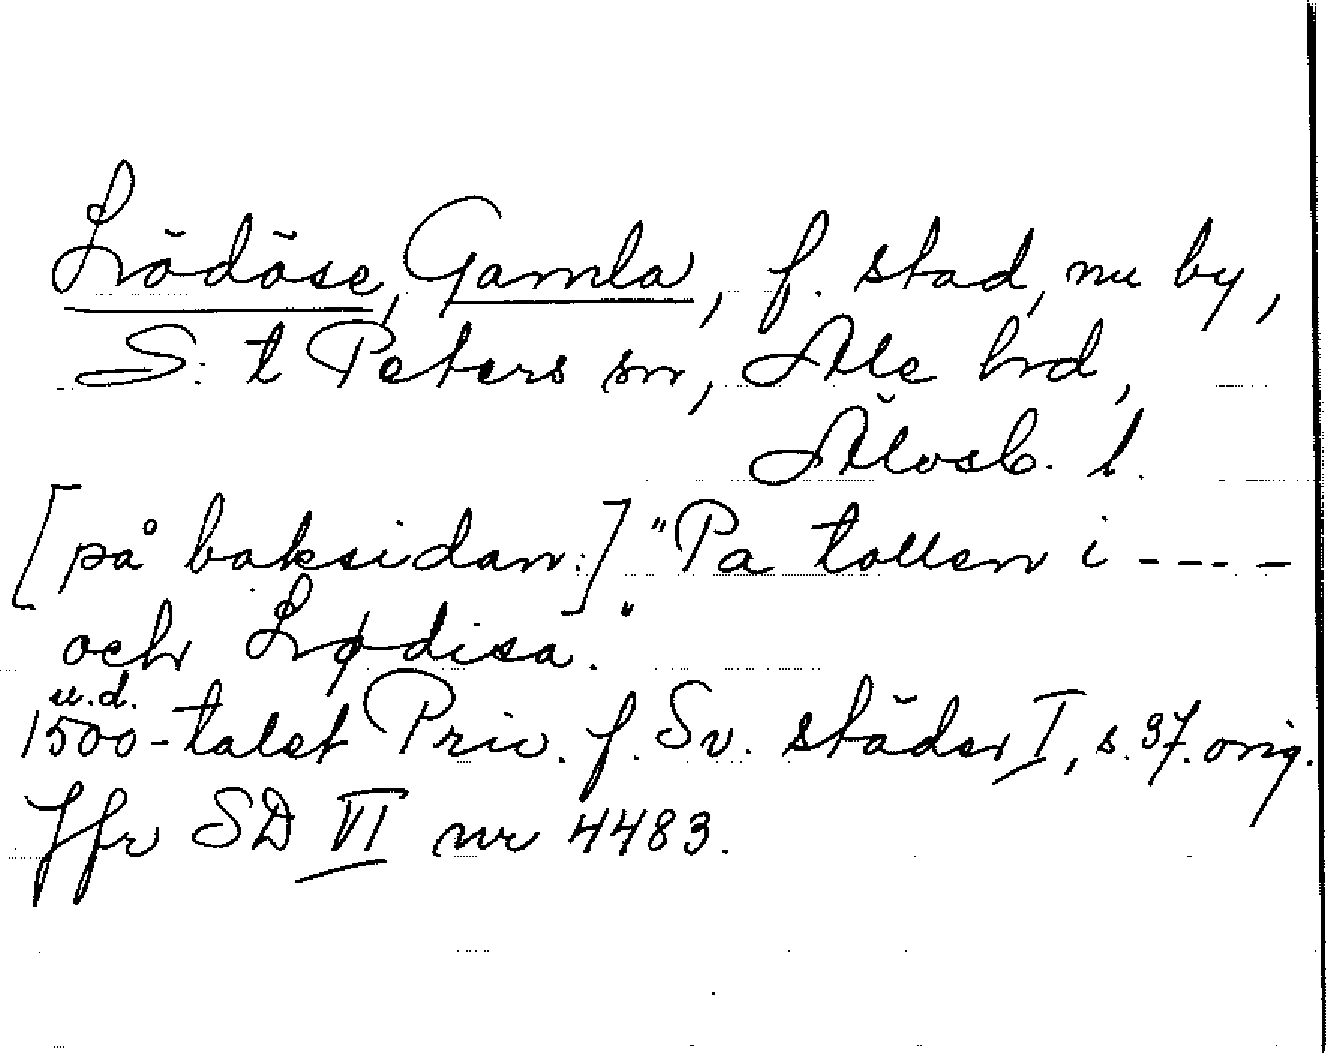 Lödöse, Gamla, f. stad, nu by,
S:t Peters sn, Ale hd,
Älvsb. l.
[på baksidan:] "Pa tollen i ----
och Lødisa."
u.d.
1500-talet Priv. f. Sv. städer I, s. 37. orig.
Jfr SD VI nr 4483.